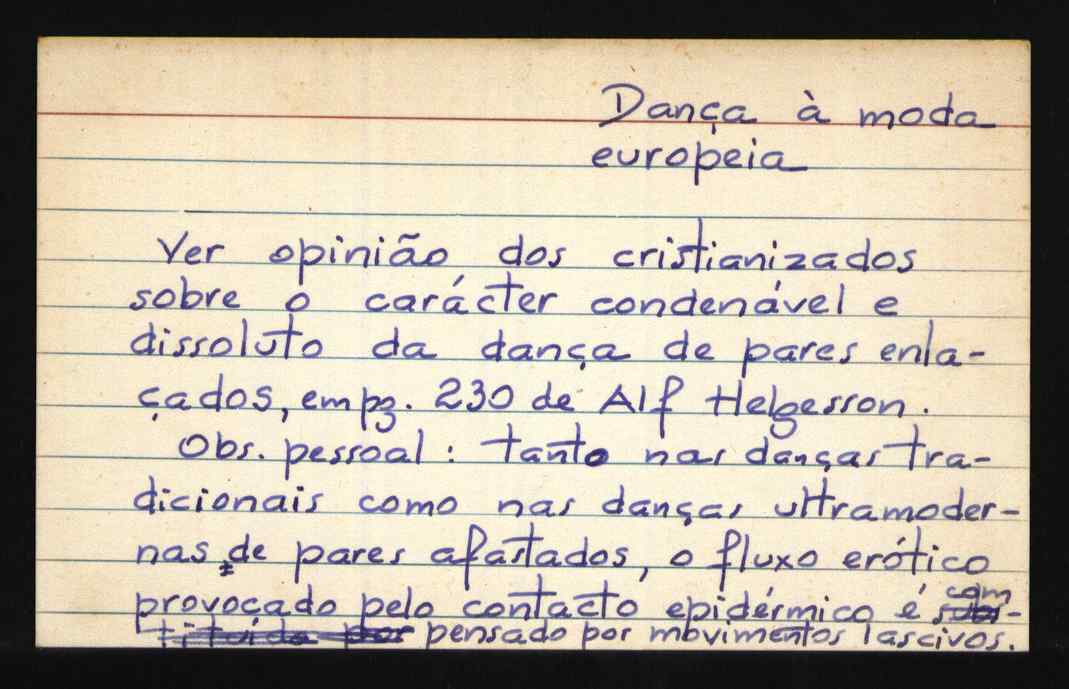 Dança à moda
europeia
Ver opinião dos cristianizados
sobre o carácter condenável e
dissoluto da dança de pares enla-
çados, em pg. 230 de Alf Helgesson.
Obs. pessoal: tanto nas danças tra-
dicionais como nas danças ultramoder-
nas, de pares afastados, o fluxo erótico
provocado pelo contacto epidérmico é com
pensado por movimentos lascivos.